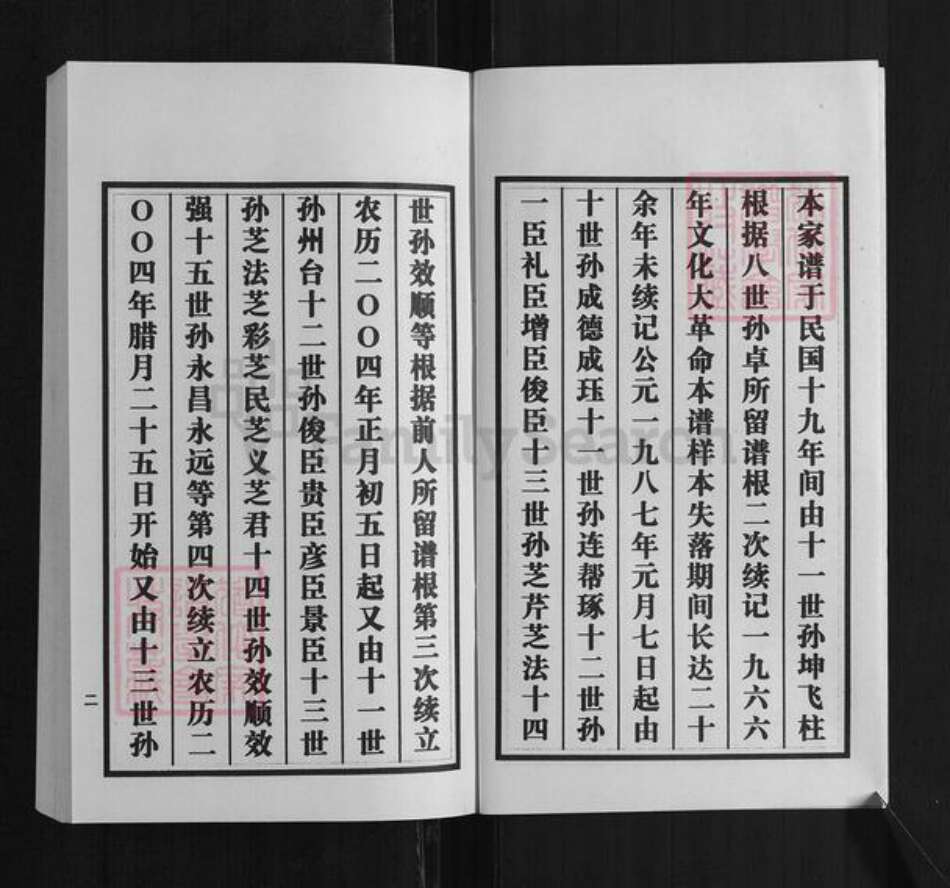 本家谱于民国十九年间由十一世孙坤飞柱
根据八世孙卓所留谱根二次续记一九六六
年文化大革命本谱样本失落期间长达二十
余年未续记公元一九八七年元月七日起由
十世孙成德成珏十一世孙连帮琢十二世孙
一臣礼臣增臣俊臣十三世孙芝芹芝法十四
世孙效顺等根据前人所留谱根第三次续立
农历二〇〇四年正月初五日起又由十一世
孙州台十二世孙俊臣贵臣彦臣景臣十三世
孙芝法芝彩芝民芝义芝君十四世孙效顺效
强十五世孙永昌永远等第四次续立农历二
〇〇四年腊月二十五日开始又由十三世孙
二
FamilySearch